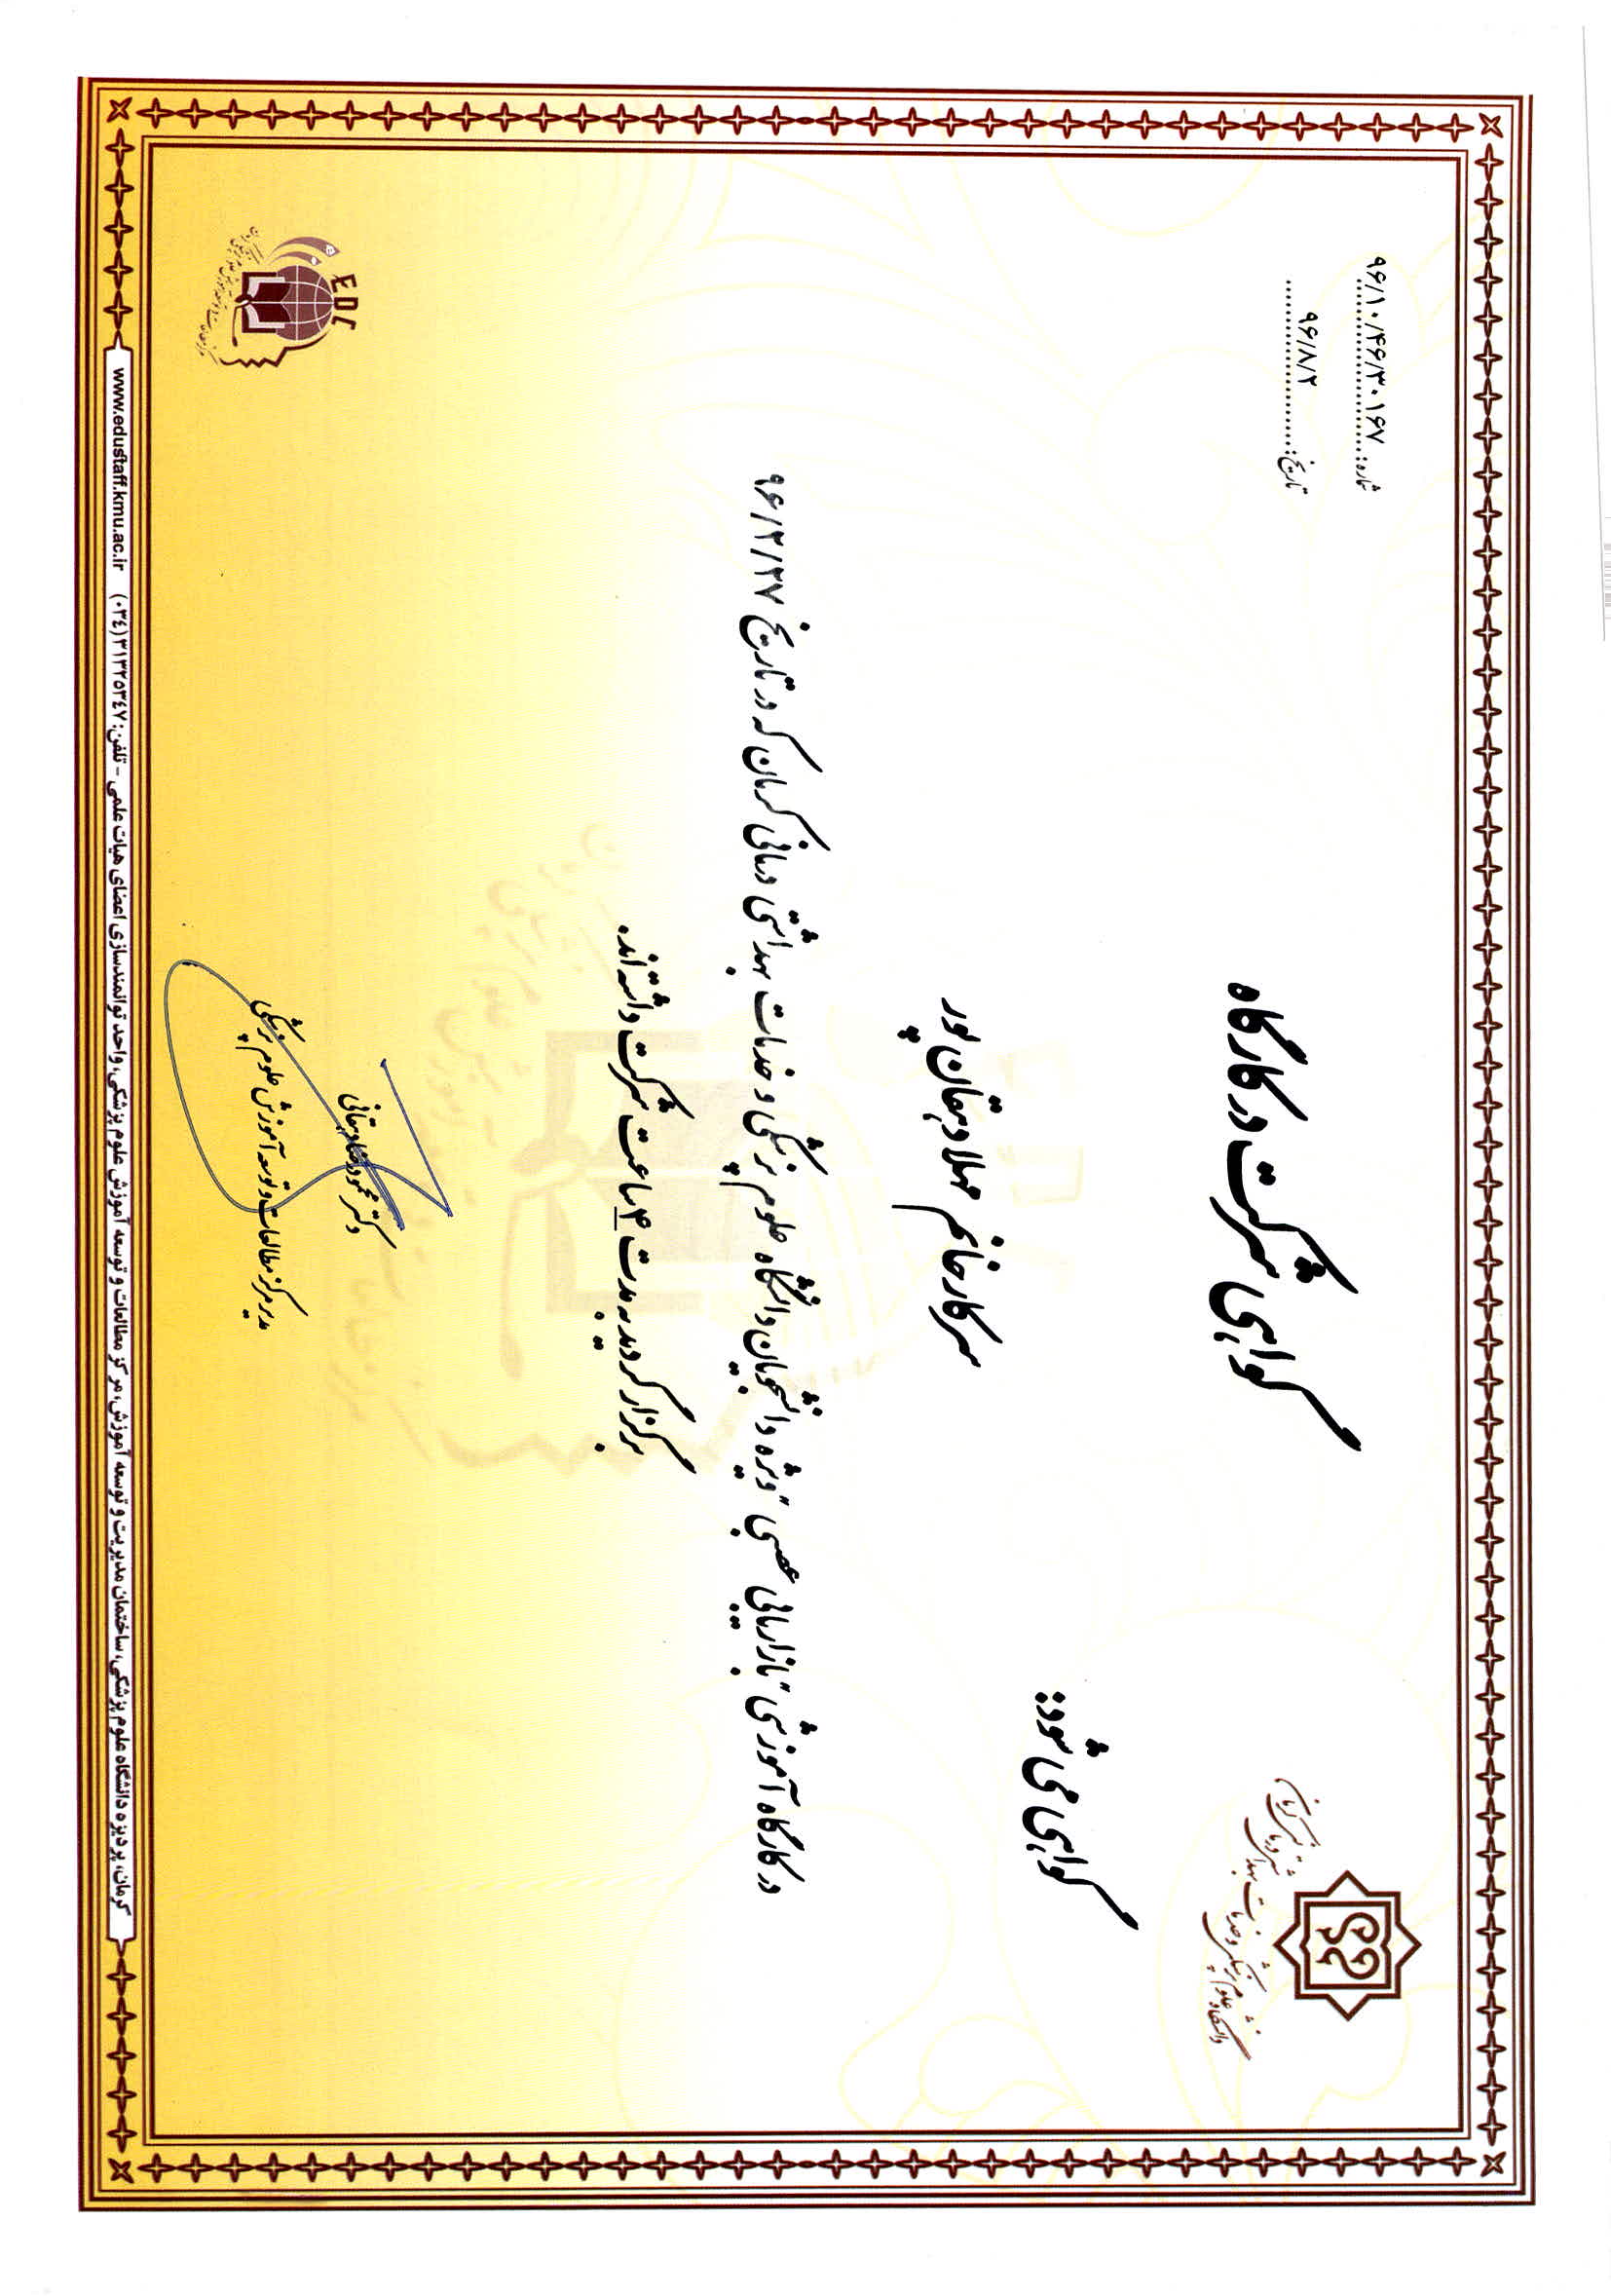 شماره: ۹۶/۱۰/۴۶/۳۰۱۶۷
تاریخ: ۹۶/۸/۲
دانشگاه علوم پزشکی و خدمات بهداشتی درمانی کرمان
گواهی شرکت در کارگاه
گواهی می شود:
سرکار خانم مهلا دهقان پور
در کارگاه آموزشی "بازاریابی عصبی" ویژه دانشجویان دانشگاه علوم پزشکی و خدمات بهداشتی درمانی کرمان که در تاریخ ۹۶/۲/۲۷
برگزار گردید به مدت ۴ ساعت شرکت داشته اند.
دکتر محمودرضا دهقانی
مدیر مرکز مطالعات و توسعه آموزش علوم پزشکی
EDC
کرمان، پردیزه دانشگاه علوم پزشکی، ساختمان مدیریت و توسعه آموزش، مرکز مطالعات و توسعه آموزش علوم پزشکی، واحد توانمندسازی اعضای هیات علمی - تلفن: ۳۱۳۲۵۳۴۷(۰۳۴) www.edustaff.kmu.ac.ir